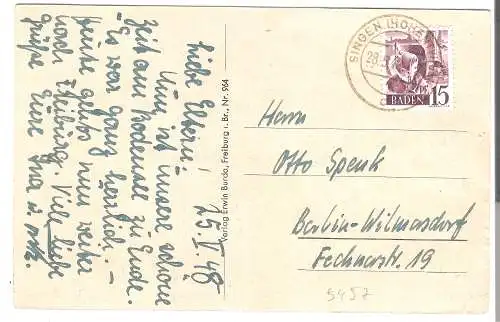 25.V.48
Liebe Eltern!
Nun ist unsere schöne
Zeit am Bodensee zu Ende.
Es war ganz herrlich. –
Heute gehts nun weiter
nach Freiburg. Viele liebe
Grüße Eure
Verlag Erwin Burda, Freiburg i. Br., Nr. 964
SINGEN (HOHE
BADEN 15
Herrn
Otto Spenk
Berlin-Wilmersdorf
Fechnerstr. 19
5457